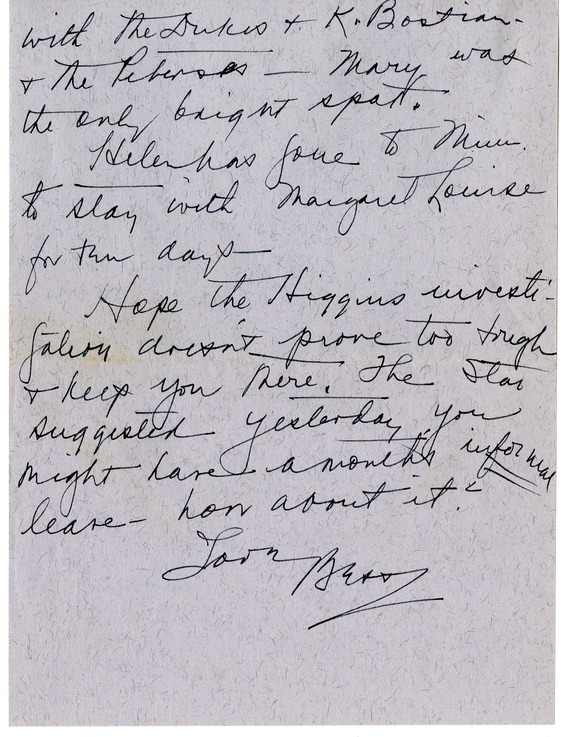 with the Dukes + K. Bostian -
+ the Peterses — Mary was
the only bright spot.
Helen has gone to Minn.
to stay with Margaret Louise
for ten days —
Hope the Higgins investi-
gation doesn't prove too tough
+ keep you there. The Star
suggested yesterday you
might have a month's informal
leave - how about it?
Love
Bess